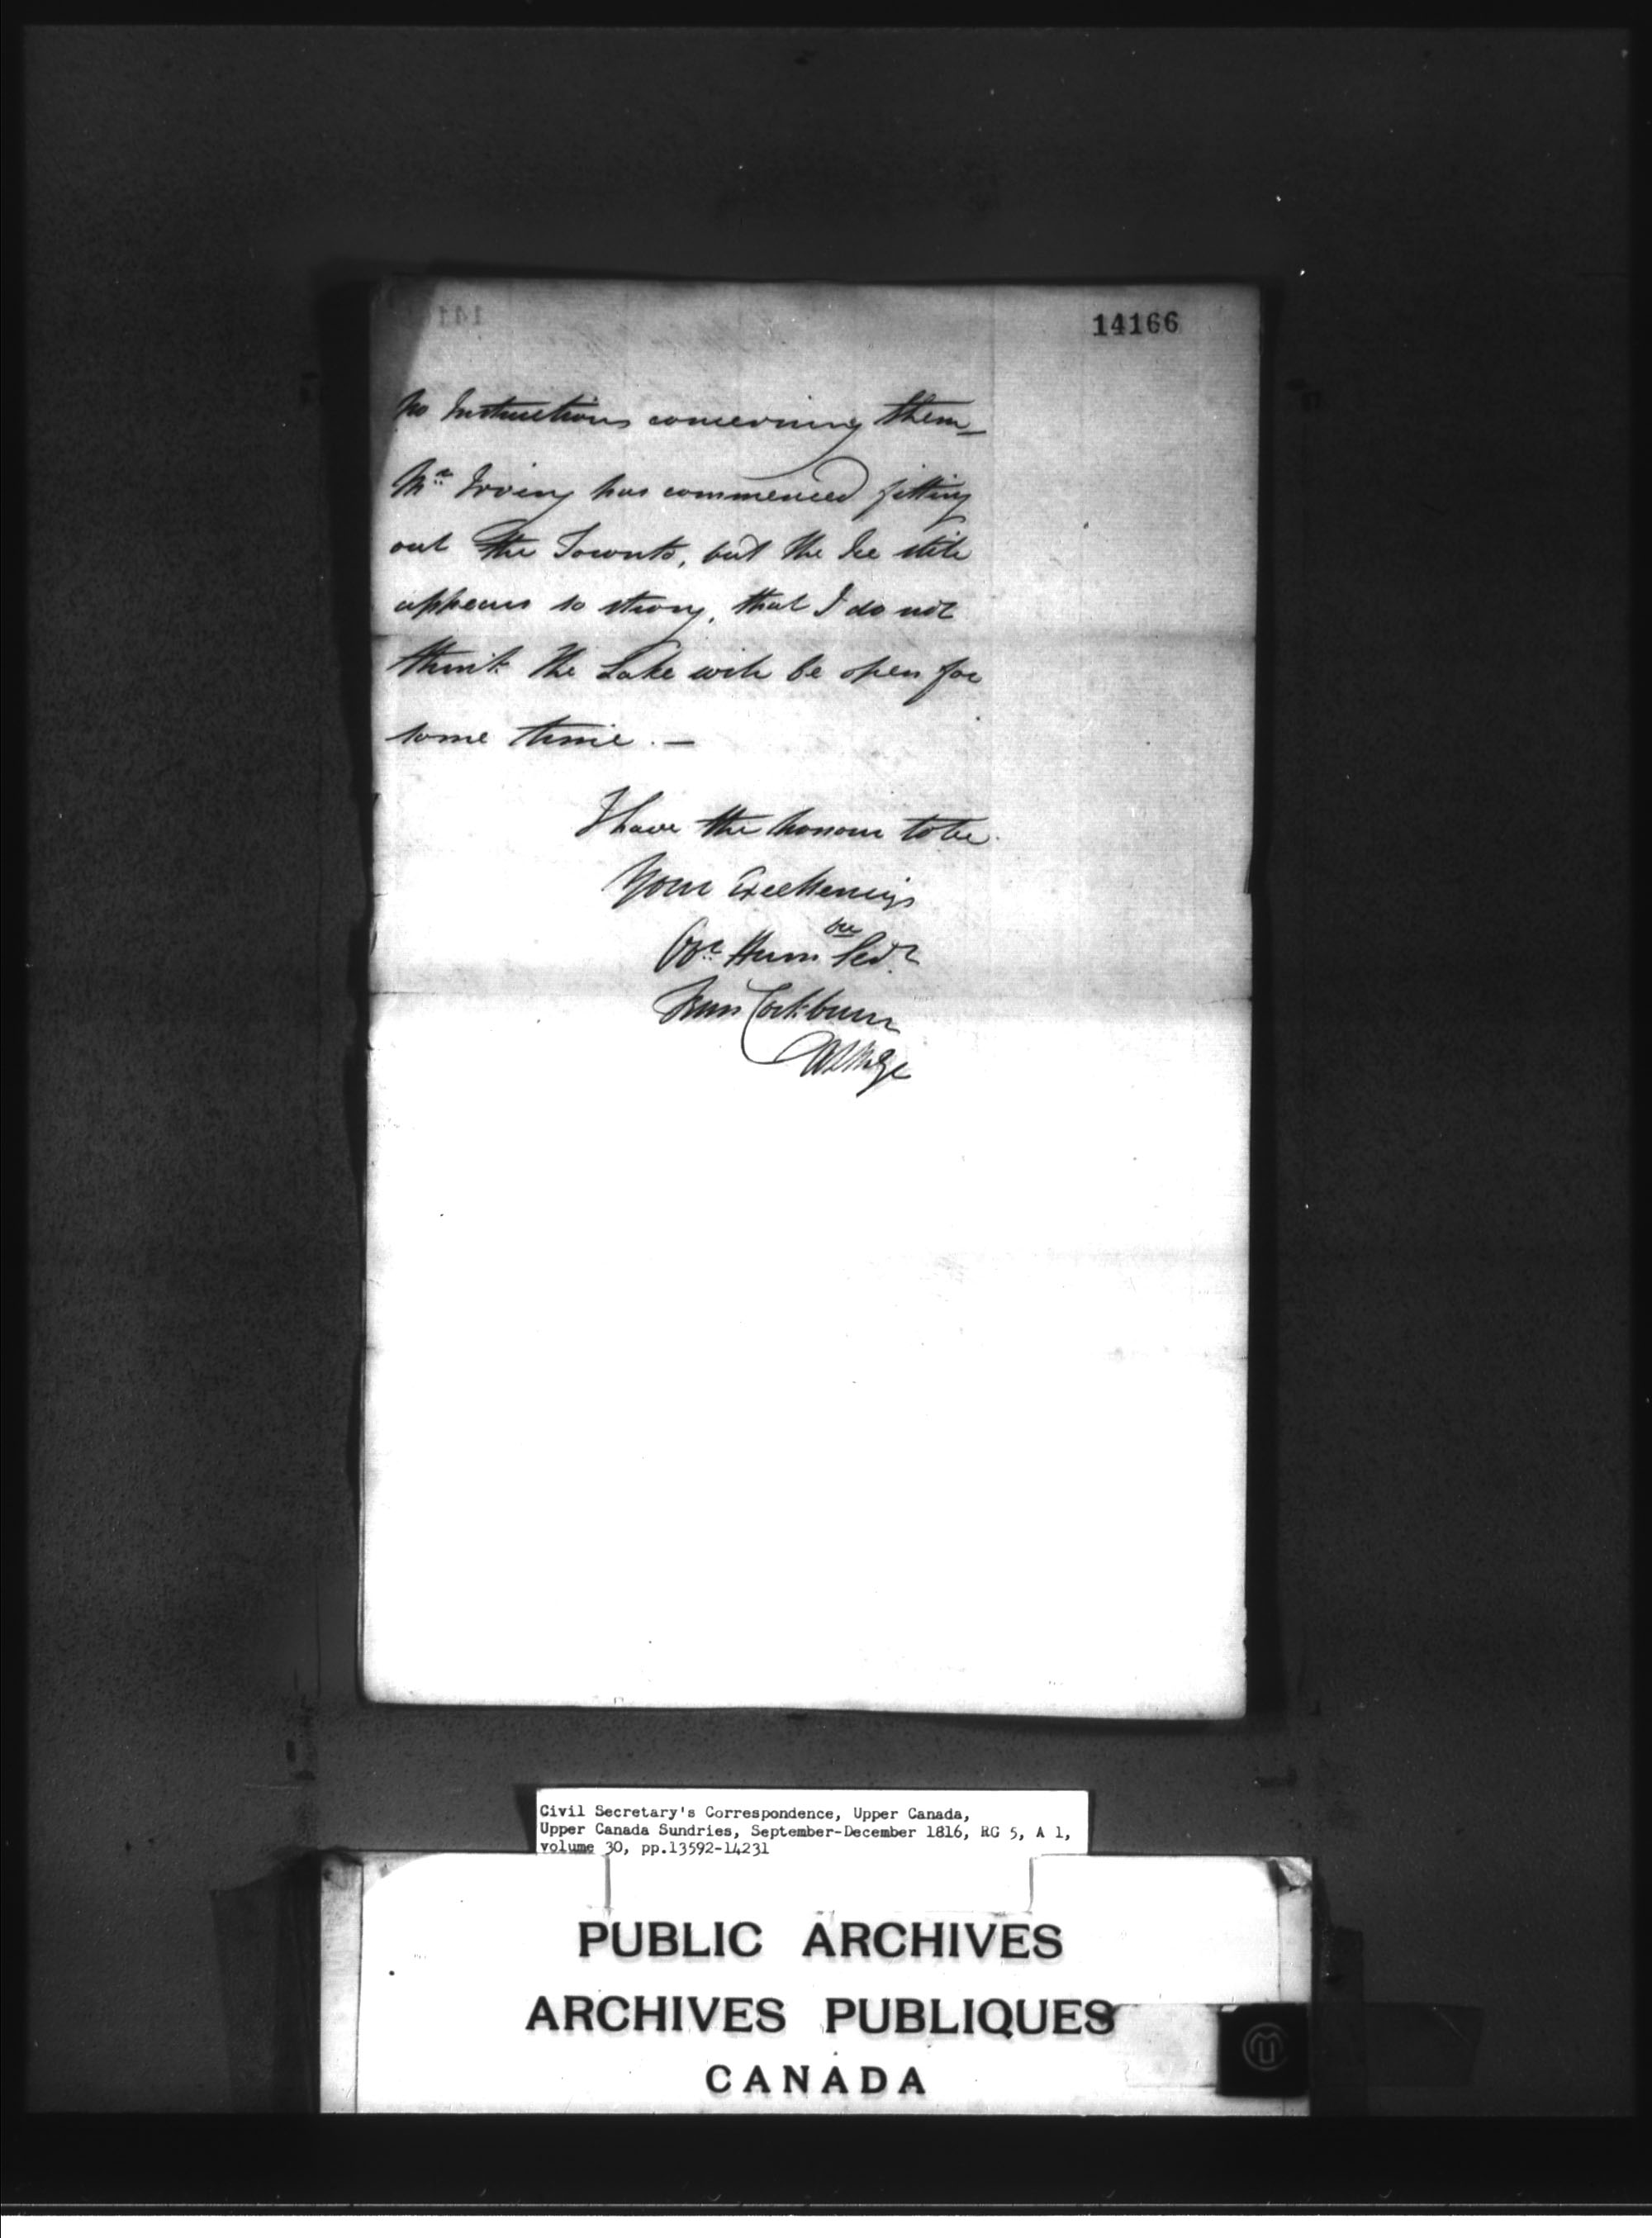 14166
no Instructions concerning them_
Mr Irving has commenced fitting
out the Toronto, but the Ice still
appears so strong, that I do not
think the Lake will be open for
some time. —
I have the honour to be
Your Excellencies
Obt Humble Servt
Fran Cockburn
Civil Secretary's Correspondence, Upper Canada,
Upper Canada Sundries, September-December 1816, RG 5, A 1,
volume 30, pp.13592-14231
PUBLIC ARCHIVES
ARCHIVES PUBLIQUES
CANADA